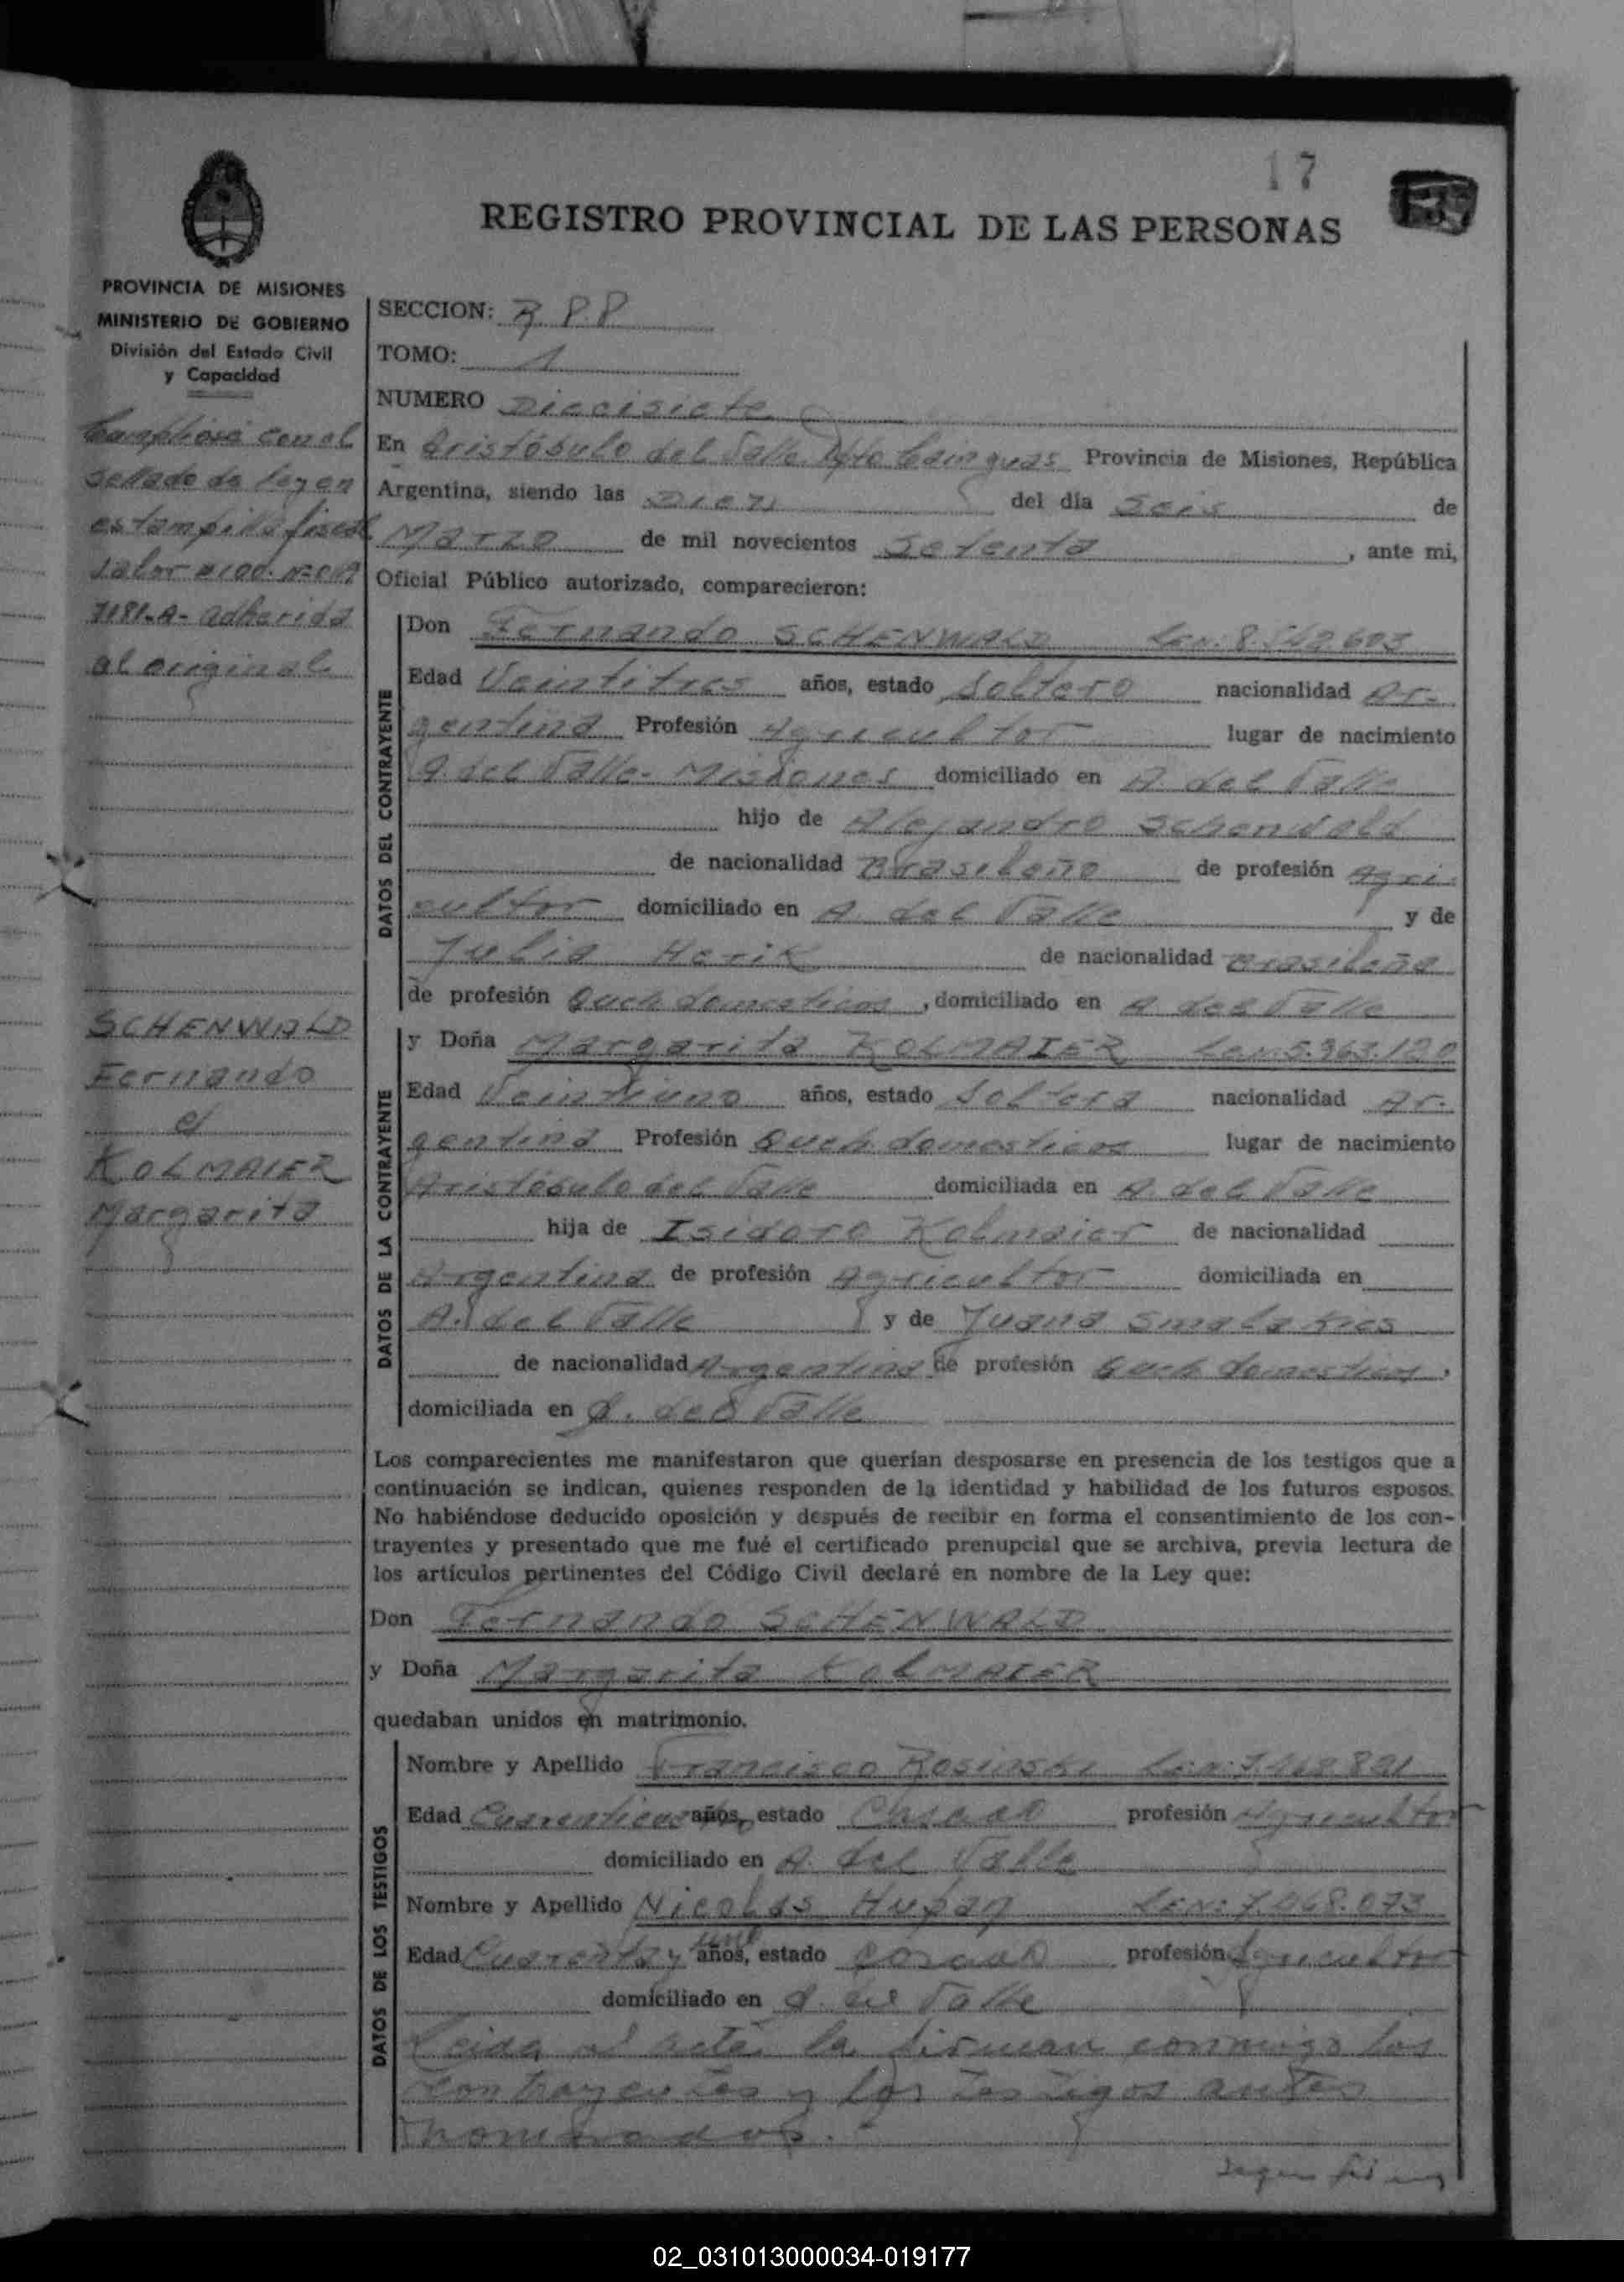 17
REGISTRO PROVINCIAL DE LAS PERSONAS
PROVINCIA DE MISIONES
MINISTERIO DE GOBIERNO
División del Estado Civil
y Capacidad
Camplióse con el
sellado de ley en
estampilla fiscal
valor
7181-A- adherida
al original
SCHENWALD
Fernando
c/
KOLMAIER
Margarita
SECCION: R.P.P
TOMO: 1
NUMERO Diecisiete
En Aristóbulo del Valle Dpto Cainguas Provincia de Misiones, República
Argentina, siendo las Diez del día Seis de
Marzo de mil novecientos Setenta, ante mi,
Oficial Público autorizado, comparecieron:
DATOS DEL CONTRAYENTE
Don Fernando SCHENWALD L.e.n: 8.542.603
Edad Veintitres años, estado Soltero nacionalidad Ar-
gentina Profesión Agricultor lugar de nacimiento
A. del Valle- Misiones domiciliado en A. del Valle
hijo de Alejandro Schenwald
de nacionalidad Brasileño de profesión Agri
cultor domiciliado en A. del Valle y de
Julia Herik de nacionalidad Brasileña
de profesión Queh. domesticos, domiciliado en A. del Valle
DATOS DE LA CONTRAYENTE
y Doña Margarita KOLMAIER L.e.n: 5.963.120
Edad Veintiuno años, estado Soltera nacionalidad Ar-
gentina Profesión Queh. domesticos lugar de nacimiento
Aristóbulo del Valle domiciliada en A. del Valle
hija de Isidoro Kolmaier de nacionalidad
Argentina de profesión Agricultor domiciliada en
A. del Valle y de Juana Smalakies
de nacionalidad Argentina de profesión Queh domesticos,
domiciliada en A. del Valle
Los comparecientes me manifestaron que querían desposarse en presencia de los testigos que a
continuación se indican, quienes responden de la identidad y habilidad de los futuros esposos.
No habiéndose deducido oposición y después de recibir en forma el consentimiento de los con-
trayentes y presentado que me fué el certificado prenupcial que se archiva, previa lectura de
los artículos pertinentes del Código Civil declaré en nombre de la Ley que:
Don Fernando SCHENWALD
y Doña Margarita KOLMAIER
quedaban unidos en matrimonio.
DATOS DE LOS TESTIGOS
Nombre y Apellido Francisco Rosinski
Edad años, estado Casado profesión Agricultor
domiciliado en A. del Valle
Nombre y Apellido Nicolás Hupan L.e.n: 7.468.073
Edad Cuarenta y uno años, estado Casado profesión Agricultor
domiciliado en A. del Valle
Leida el acta la firman conmigo los
contrayentes y los testigos antes
nombrados.
02_031013000034-019177